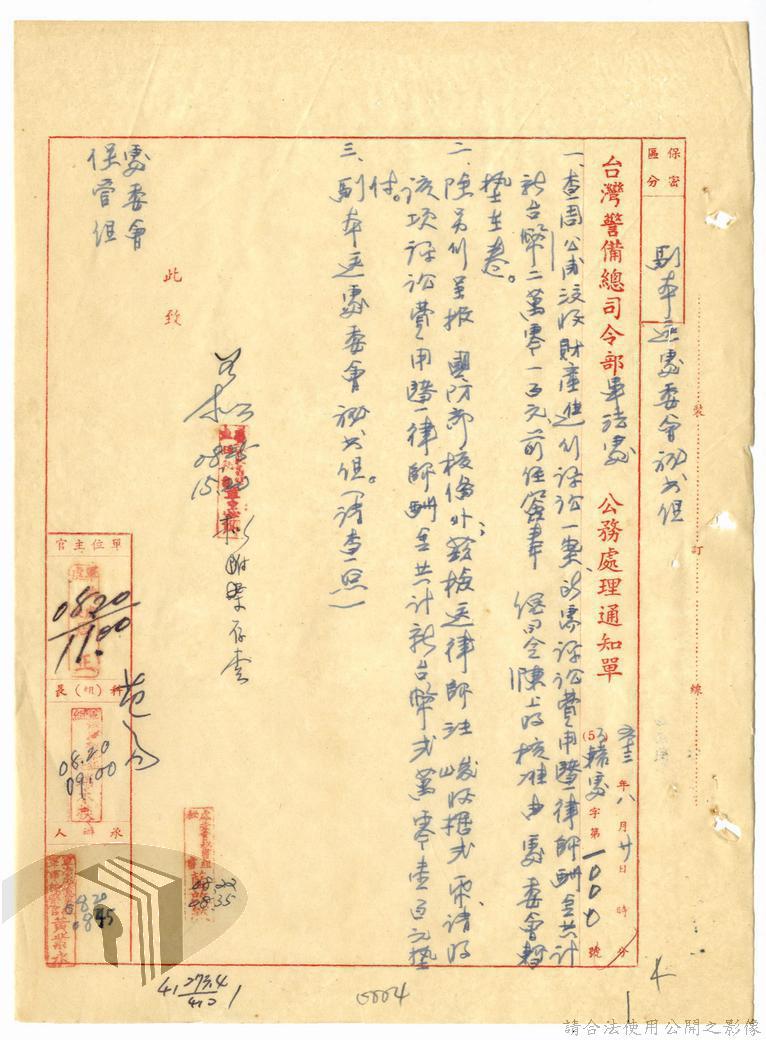 保密
區分
副本送處委會秘書組
裝
訂
線
台灣警備總司令部軍法處 公務處理通知單
年八月廿日 時 分
字第一〇〇〇號
一、查周公甫沒收財產進行訴訟一案所需訴訟費用暨律師酬金共計
新台幣二萬零一百元前經簽奉 總司令陳上將核准由處委會暫
墊在卷。
二、除另行呈報 國防部核備外,茲檢送律師 收據弍張請收
該項訴訟費用暨律師酬金共計新台幣弍萬零壹百元墊
付。
三、副本送處委會秘書組。(請查照)
此致
處委會
保管組
存查
08
15
單位主官
0820
1100
科(組)長
08.20
09.00
承 人
0820
0845
黃業永
08.22
08.35
0004
請合法使用公開之影像